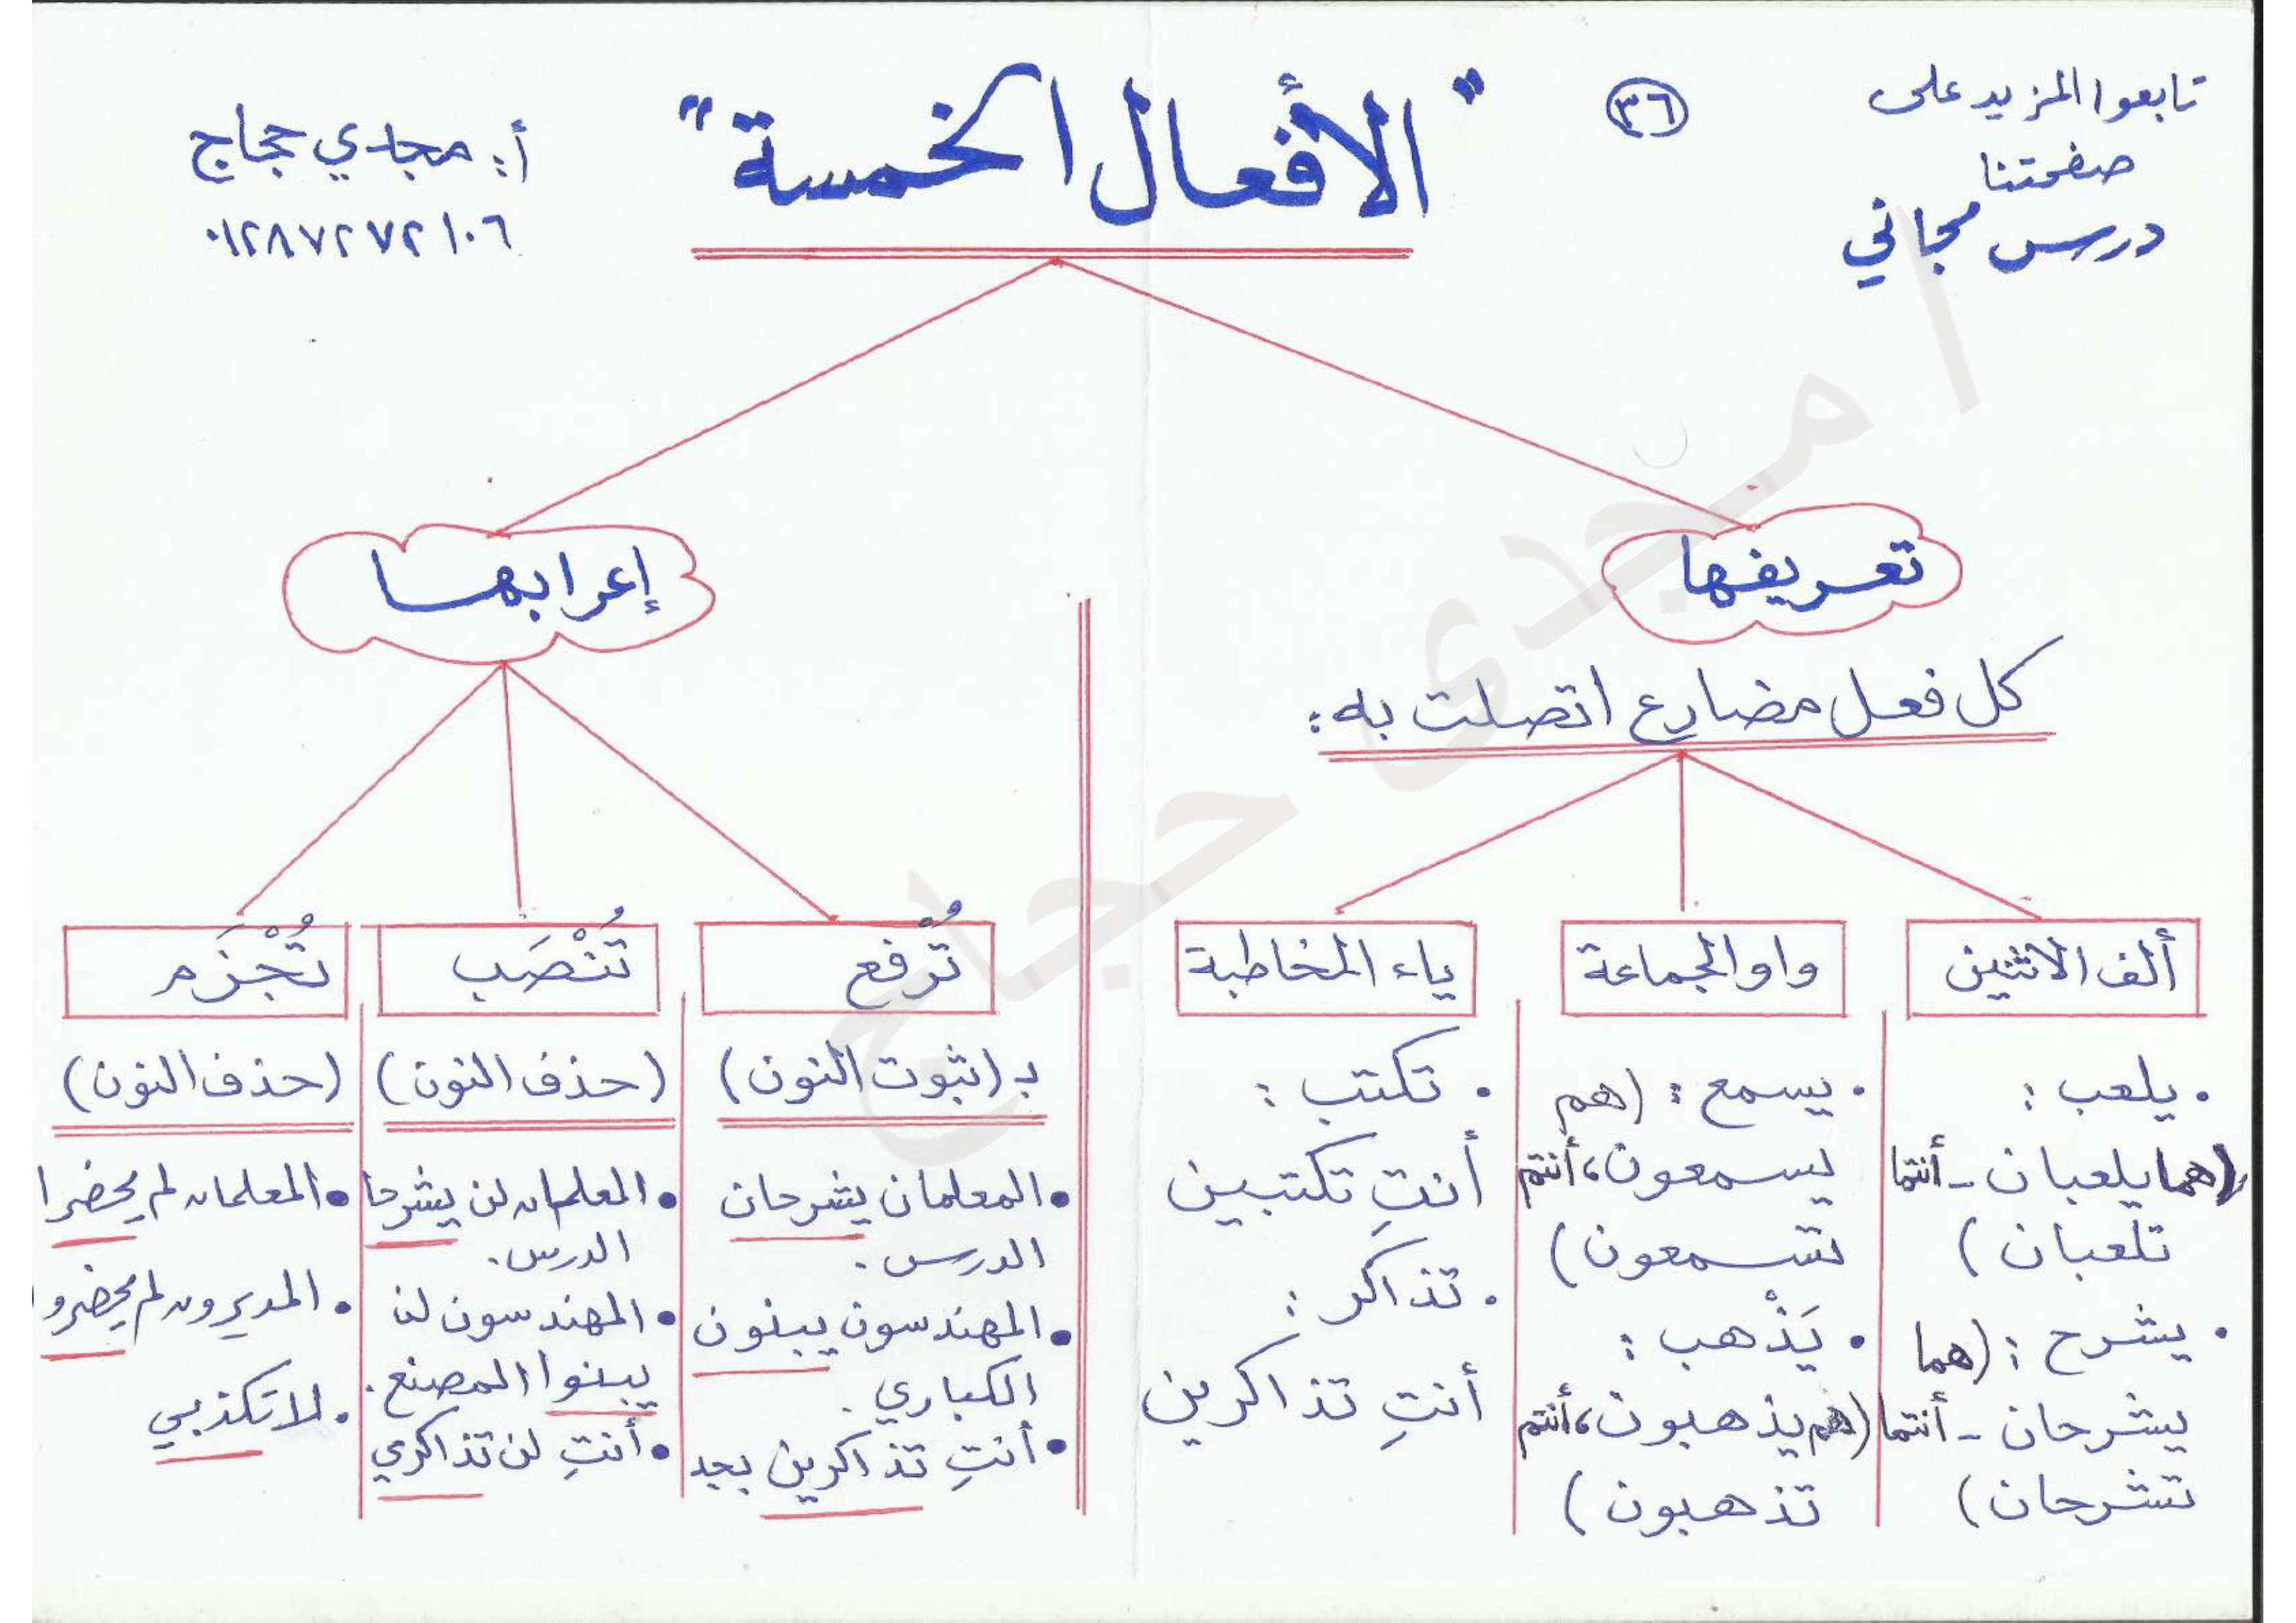 تابعوا المزيد على
صفحتنا
درس مجاني
٣٦
"الأفعال الخمسة"
أ: مجدي حجاج
٠١٢٨٧٢٧٢١٠٦
تعريفها
كل فعل مضارع اتصلت به:
ألف الاثنين
• يلعب :
(هما يلعبان - أنتما
تلعبان)
• يشرح : (هما
يشرحان - أنتما
تشرحان)
واو الجماعة
• يسمع : (هم
يسمعون، أنتم
تسمعون)
• يَذْهب :
(هم يذهبون، أنتم
تذهبون)
ياء المخاطبة
• تكتب :
أنتِ تكتبين
• تذاكر :
أنتِ تذاكرين
إعرابها
تُرْفع
بـ (ثبوت النون)
• المعلمان يشرحان
الدرس.
• المهندسون يبنون
الكباري.
• أنتِ تذاكرين بجد
تُنْصَب
(حذف النون)
• المعلمان لن يشرحا
الدرس.
• المهندسون لن
يبنوا المصنع.
• أنتِ لن تذاكري
تُجْزَم
(حذف النون)
• المعلمان لم يحضرا
• المديرون لم يحضروا
• لا تكذبي
ا/مجدى حجاج